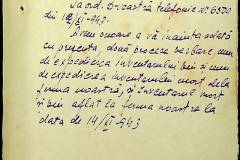 La ord. D-voastră telefonic No 6570
din 12/XI-943.
Avem onoare a vă înainta odată
cu prezenta, două procese verbale, unul
de expedierea inventarului viu și unul
de expedierea inventarului mort dela
ferma noastră, și inventarul mort
și viu aflat la ferma noastră la
data de 14/XI 943